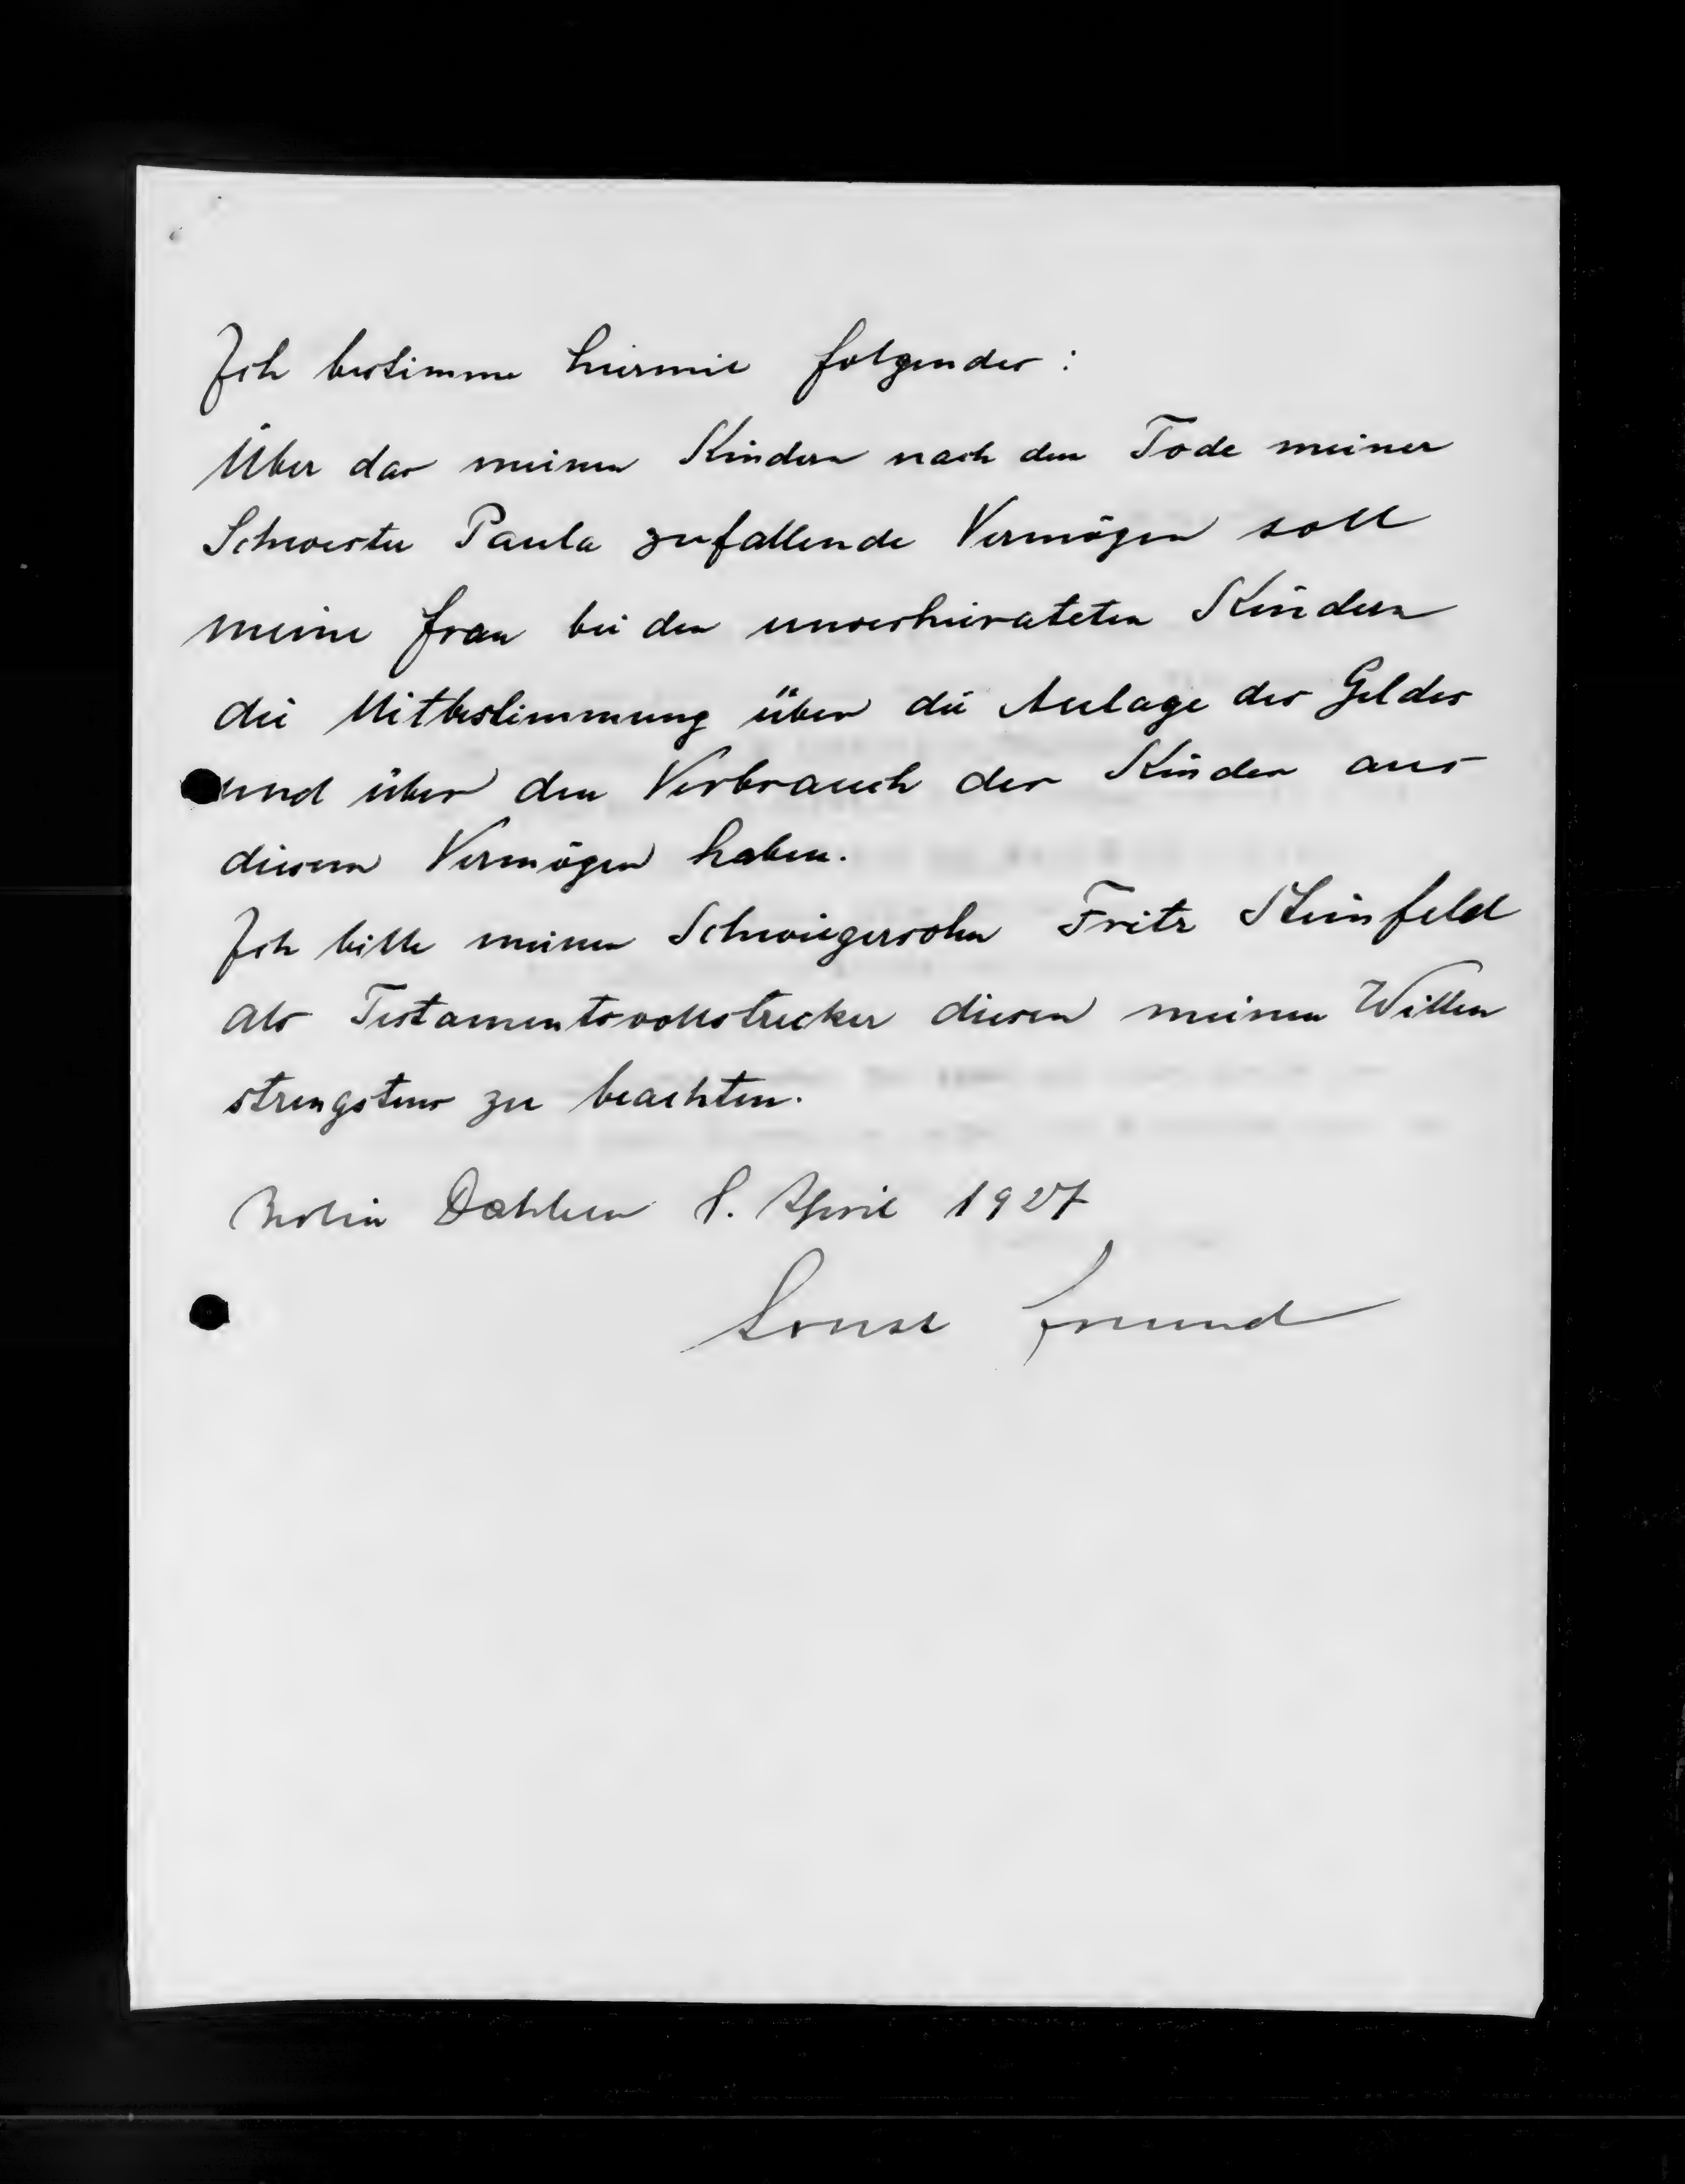 Ich bestimme hiermit folgendes:
Über das meinen Kindern nach dem Tode meiner
Schwester Paula zufallende Vermögen soll
meine Frau bei den unverheirateten Kindern
die Mitbestimmung über die Anlage des Geldes
und über den Verbrauch der Kinder aus
diesem Vermögen haben.
Ich bitte meinen Schwiegersohn Fritz Steinfeld
als Testamentsvollstrecker diesen meinen Willen
strengstens zu beachten.
Berlin Dahlem 8. April 1927
Ernst Freund